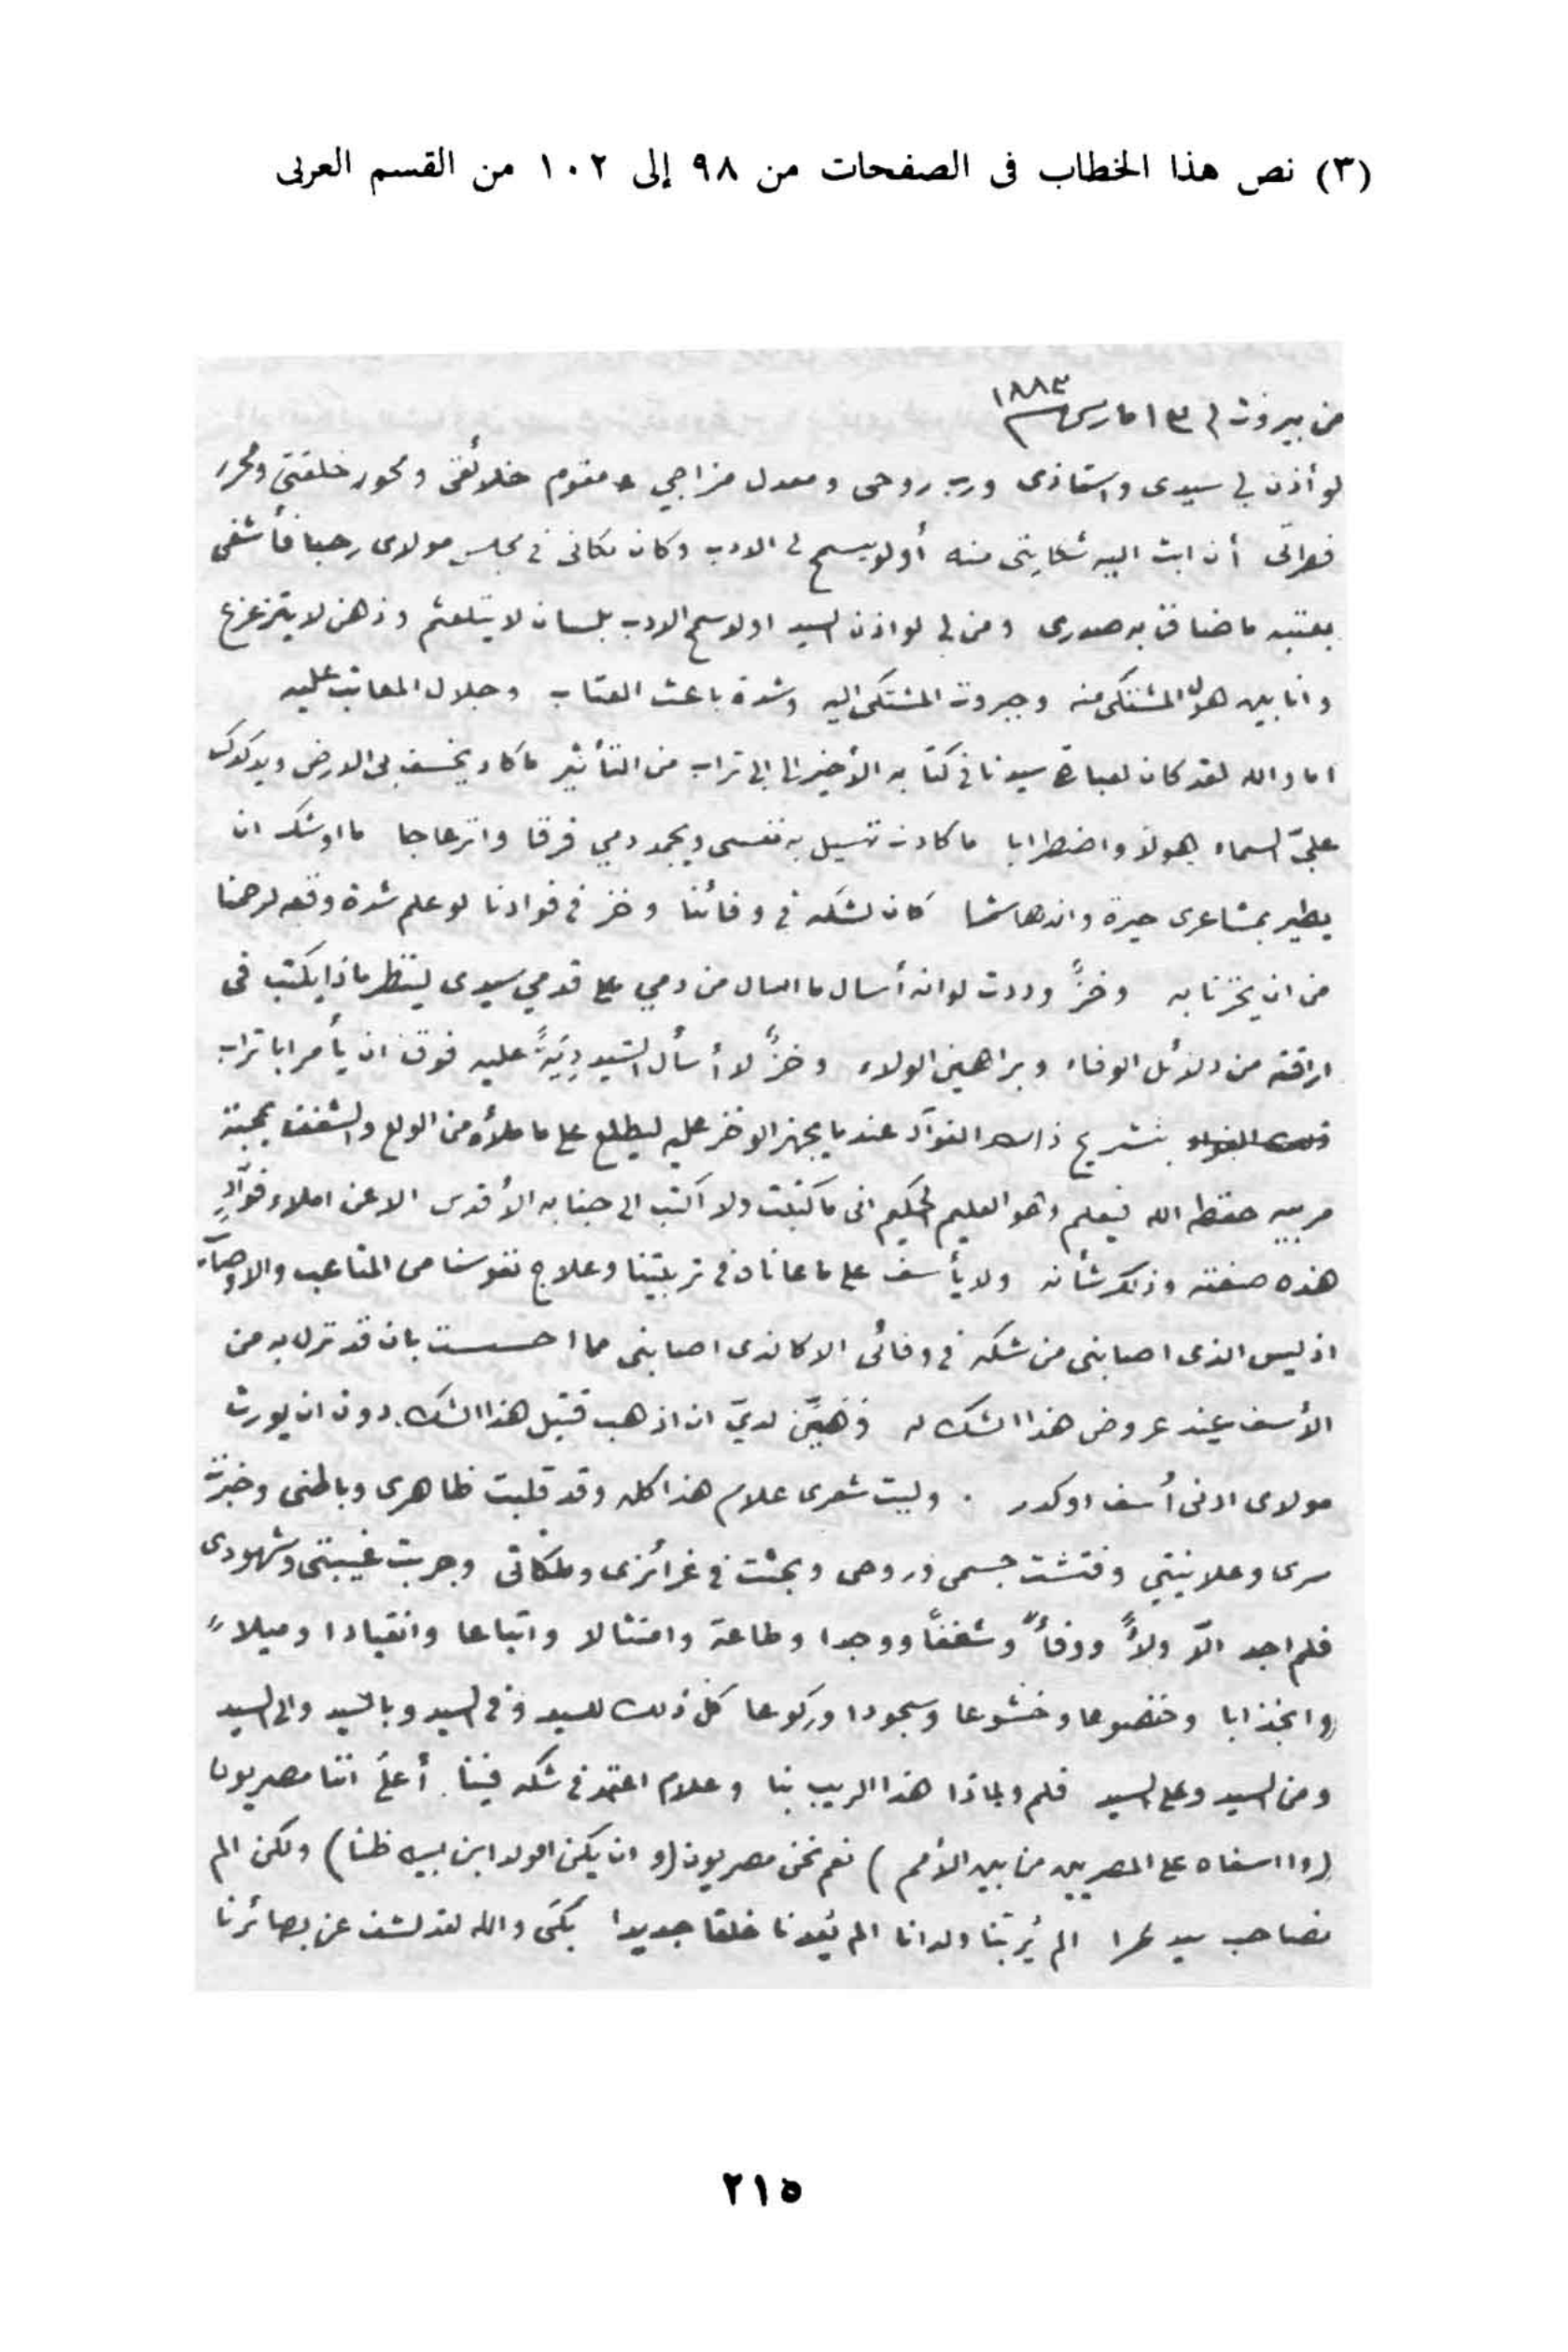 (٣) نص هذا الخطاب فى الصفحات من ٩٨ إلى ١٠٢ من القسم العربى
من بيروت في ١٣ مارس سنة ١٨٨٣
لو أذن لي سيدى واستاذى ورب روحى ومعدل مزاجي ومقوم خلائقى ومحور خلقتى ومحرر
فطرتى أن ابث اليه شكايتى منه أو لو يسمح لى الادب وكان مكانى فى مجلس مولاى رحبا فأشفى
بعتبه ما ضاق به صدرى ومن لى لو اذن السيد او لو سمح الادب بلسان لا يتلعثم وذهن لا يتزعزع
وانا بين هول المشتكى منه وجبروت المشتكى اليه وشدة باعث العتاب وجلال المعاتب عليه
اما والله لقد كان لعبارة سيدنا فى كتابه الأخير الى ابى تراب من التأثير ما كاد يخسف بى الارض ويدكدك
علىّ السماء هولا واضطرابا ما كادت تسيل به نفسى ويجمد دمي فرقا وانزعاجا ما اوشك ان
يطير بمشاعرى حيرة واندهاشا كان لشكه فى وفائنا وخز فى فوادنا لو علم شدة وقعه لرحمنا
من ان يخزنا به وخزً وددت لو انه أسال ما اسال من دمي على قدمي سيدى لينظر ماذا يكتب فى
اراقته من دلائل الوفاء وبراهين الولاء وخزً لا أسأل السيد دِيَةً عليه فوق ان يأمر ابا تراب
بتشريح ذاك الفوآد عندما يجهز الوخز عليه ليطلع على ما ملأه من الولع والشغف بمحبة
مربيه حفظه الله فيعلم وهو العليم الحكيم انى ما كتبت ولا اكتب الى جنابه الأقدس الا عن املاء فوآدٍ
هذه صفته وذلك شأنه ولا يأسف على ما عاناه فى تربيتنا وعلاج نفوسنا من المتاعب والاوصاب
اذ ليس الذى اصابنى من شكه فى وفائى الا كالذى اصابنى مما احسست بان قد نزل به من
الأسف عند عروض هذا الشك له فهيّن لديّ ان اذهب قتيل هذا الشك دون ان يورث
مولاى ادنى أسف او كدر . وليت شعرى علام هذا كله وقد قلبت ظاهرى وباطنى وخبرت
سرى وعلانيتي وفتشت جسمى وروحى وبحثت فى غرائزى وملكاتى وجربت غيبتى وشهودى
فلم اجد الّا ولاءً ووفاءً وشغفاً ووجدا وطاعة وامتثالا واتباعا وانقيادا وميلا
وانجذابا وخضوعا وخشوعا وسجودا وركوعا كل ذلك للسيد وفى السيد وبالسيد والى السيد
ومن السيد وعلى السيد فلم ولماذا هذا الريب بنا وعلام اعتمد فى شكه فينا. أعلَى اننا مصريون
(وا اسفاه على المصريين من بين الأمم) نعم نحن مصريون (و ان يكن الولد ابن ابيه ظنا) ولكن الم
نصاحب سيد الم يُربّنا ولدانا الم يُعدنا خلقا جديدا بلَى والله لقد كشف عن بصائرنا
٢١٥